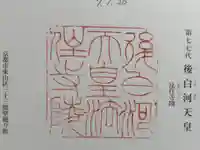 第七七代 後白河天皇
法住寺陵
後白河
天皇法
住寺陵
京都市東山区三十三間堂廻り町